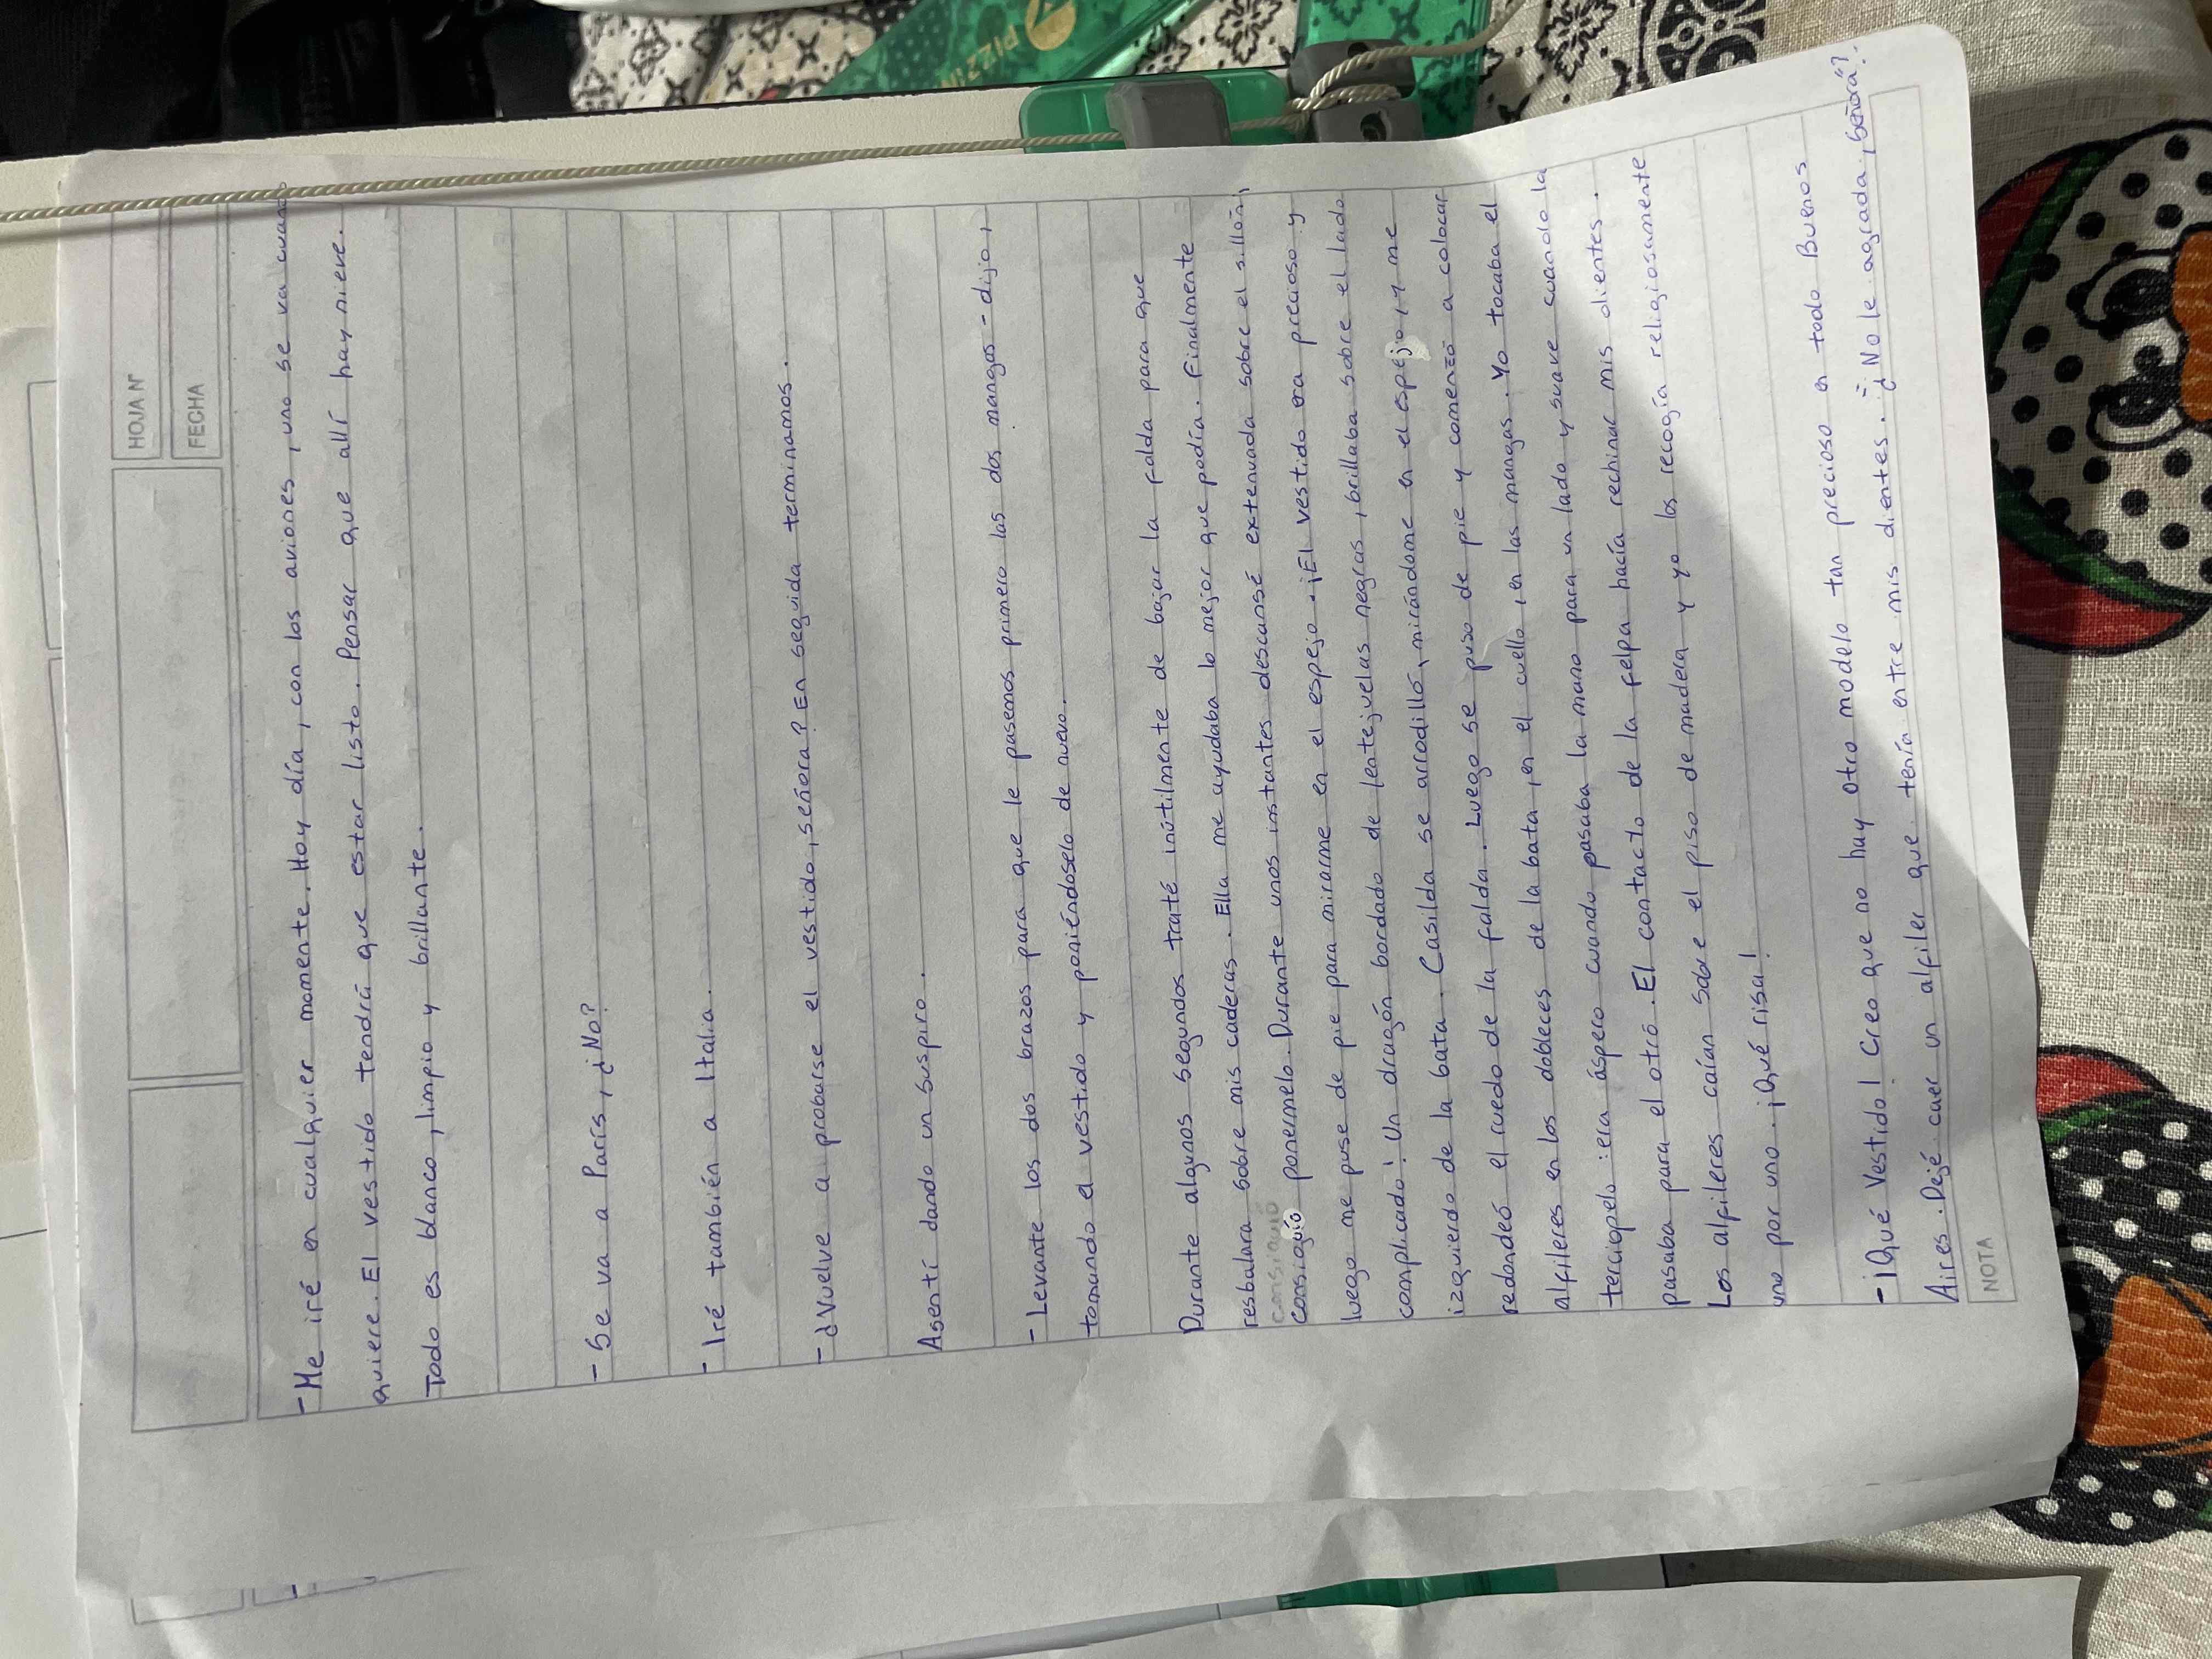 HOJA Nº
FECHA
-Me iré en cualquier momente. Hoy día, con los aviones, uno se va cuando
quiere. El vestido tendrá que estar listo. Pensar que allí hay nieve.
Todo es blanco, limpio y brillante.
- Se va a París, ¿No?
- Iré también a Italia.
- ¿Vuelve a probarse el vestido, señora? En seguida terminamos.
Asentí dando un suspiro.
- Levante los dos brazos para que le pasemos primero las dos mangas - dijo,
tomando el vestido y poniéndoselo de nuevo.
Durante algunos segundos traté inútilmente de bajar la falda para que
resbalara sobre mis caderas. Ella me ayudaba lo mejor que podía. Finalmente
consiguió ponermelo. Durante unos instantes descansé extenuada sobre el sillón,
luego me puse de pie para mirarme en el espejo. ¡El vestido era precioso y
complicado! Un dragón bordado de lentejuelas negras, brillaba sobre el lado
izquierdo de la bata. Casilda se arrodilló, mirándome en el espejo, y me
redondeó el ruedo de la falda. Luego se puso de pie y comenzó a colocar
alfileres en los dobleces de la bata, en el cuello, en las mangas. Yo tocaba el
terciopelo: era áspero cuando pasaba la mano para un lado y suave cuando la
pasaba para el otro. El contacto de la felpa hacía rechinar mis dientes.
Los alfileres caían sobre el piso de madera y yo los recogía religiosamente
uno por uno. ¡Qué risa!
- ¡Qué Vestido! Creo que no hay otro modelo tan precioso en todo Buenos
Aires. Dejé caer un alfiler que tenía entre mis dientes. - ¿No le agrada, Señora?
NOTA
PIZZINI